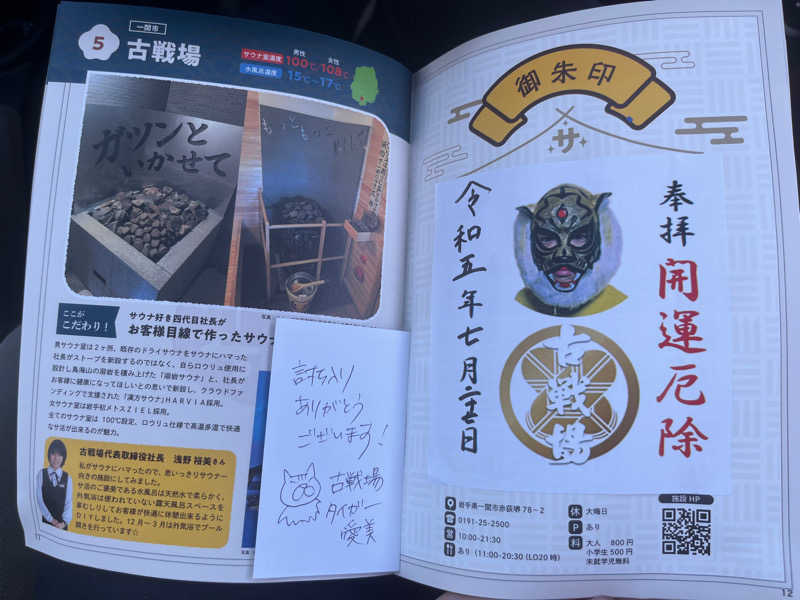 一関市
5 古戦場
男性 女性
サウナ室温度 100℃ 108℃
水風呂温度 15℃～17℃
ガツンと
いかせて
ここが
こだわり！
サウナ好き四代目社長が
お客様目線で作ったサウナ
男サウナ室は2ヶ所。既存のドライサウナをサウナにハマった
社長がストーブを新設するのではなく、自らロウリュ使用に
設計し鳥海山の溶岩を積み上げた「溶岩サウナ」と、社長が
お客様に健康になってほしいとの思いで新設し、クラウドファ
ンディングで支援された「漢方サウナ」HARVIA採用。
女サウナ室は岩手初メトスZIEL採用。
全てのサウナ室は100℃設定、ロウリュ仕様で高温多湿で快適
なサ活が出来るのが魅力。
古戦場代表取締役社長 浅野 裕美さん
私がサウナにハマったので、思いっきりサウナー
向きの施設にしてみました。
サ活のご褒美である水風呂は天然水で柔らかく、
外気浴は使われていない露天風呂スペースを
草むしりしてお客様が快適に休憩出来るように
DIYしました。12月～3月は外気浴でプール
開きを行っています☆
11
討ち入り
ありがとう
ございます！
古戦場
タイガー
愛美
御朱印
サ
奉拝
開運厄除
令和五年七月二三日
古戦場
岩手県一関市赤荻堺78-2
0191-25-2500
10:00-21:30
あり (11:00-20:30 (LO20時)
休 大晦日
P あり
料 大人 800円
小学生 500円
未就学児無料
施設HP
12